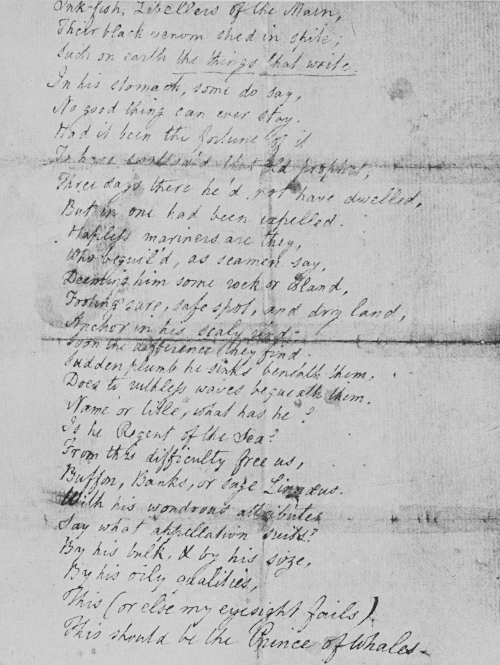 Ink-fish, Libellers of the Main,
Their black venom shed in spite;
Such on earth the things that write.
In his stomach, some do say,
No good thing can ever stay.
Had it been the fortune of it
To have swallow'd that old prophet,
Three days there he'd not have dwelled,
But in one had been expelled.
Hapless mariners are they,
Who beguil'd, as seamen say,
Deeming him some rock or island,
Footing sure, safe spot, and dry land,
Anchor in his scaly rind.
Soon the difference they find.
Sudden plumb he sinks beneath them,
Does to ruthless waves bequeath them.
Name or title, what has he?
Is he Regent of the Sea?
From this difficulty free us,
Buffon, Banks, or sage Linnæus.
With his wondrous attributes
Say what appellation suits?
By his bulk, & by his size,
By his oily qualities,
This (or else my eyesight fails)
This should be the Prince of Whales-